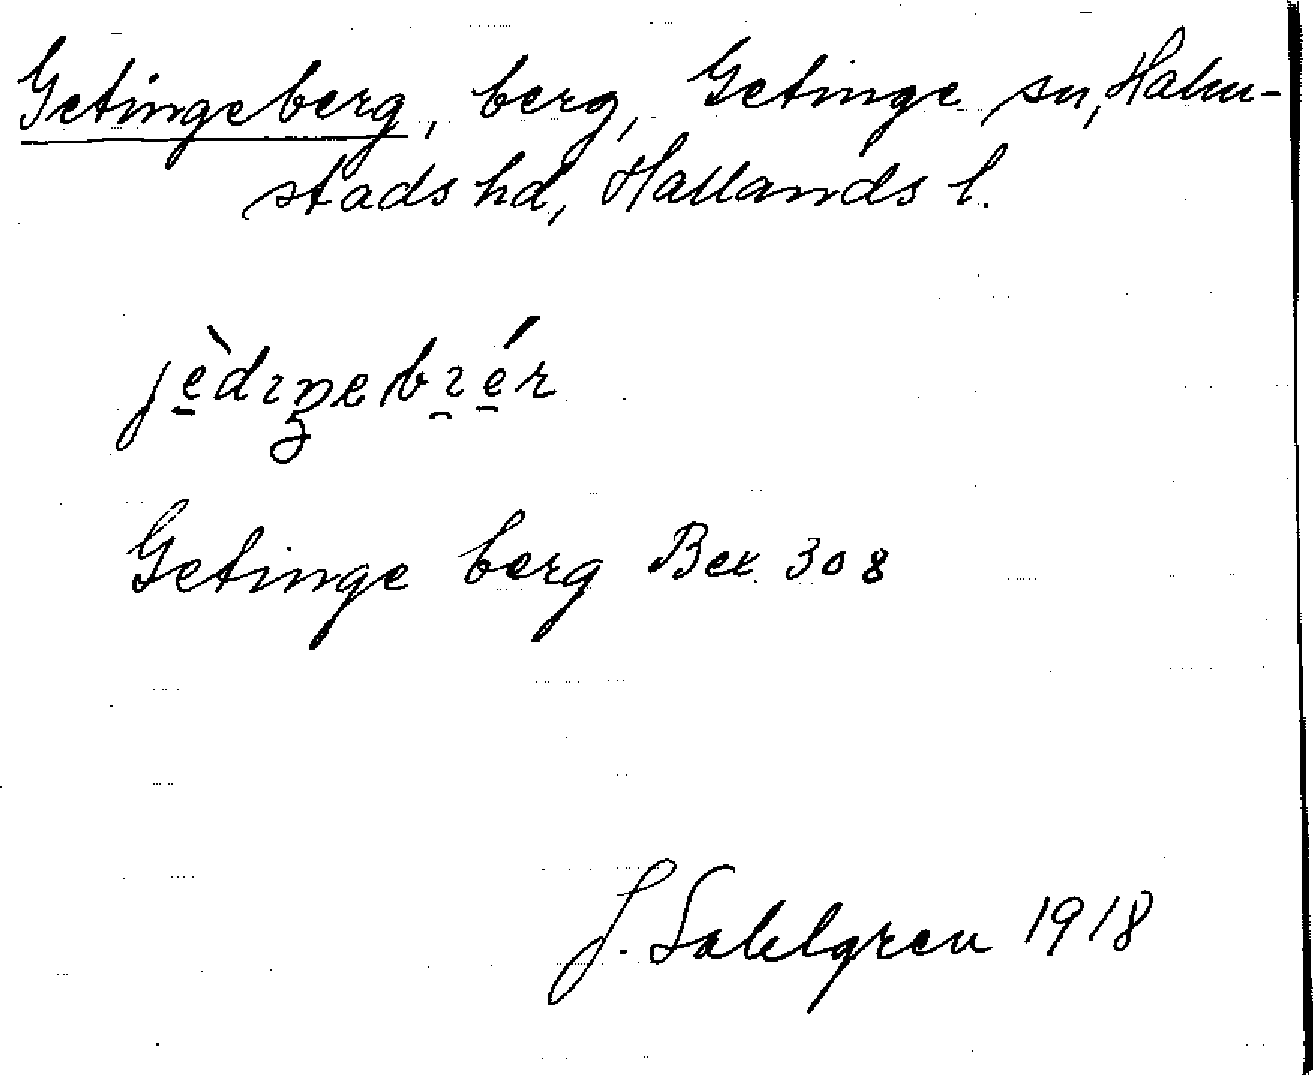 Getingeberg, berg, Getinge sn, Halm-
stads hd, Hallands l.
Getinge berg Bex. 308
J. Sahlgren 1918